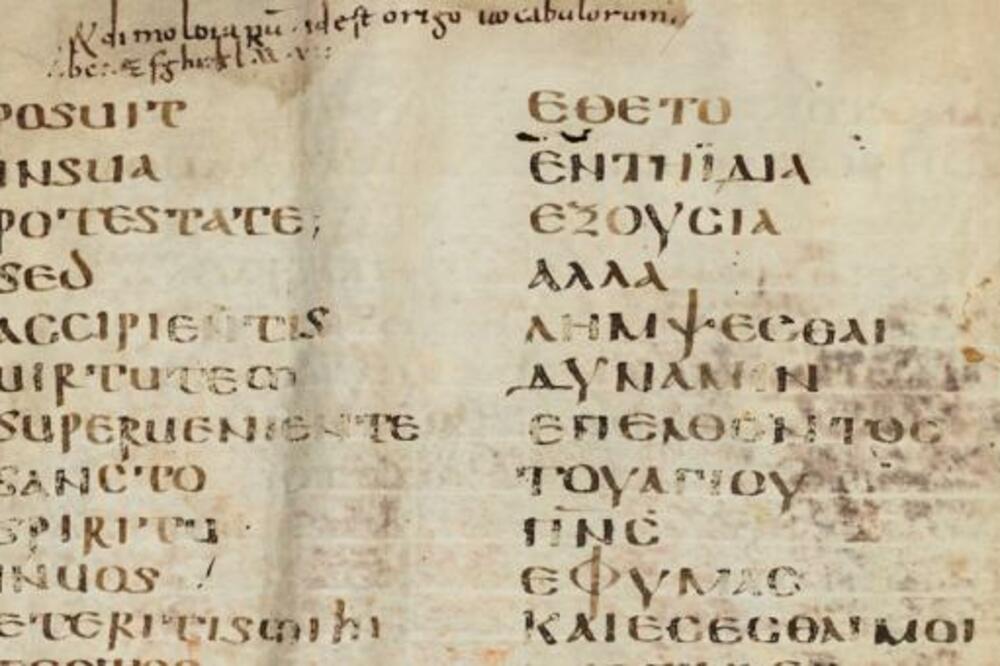 & dimoloiarum idest origo uocabulorum.
POSUIT ΕΘΕΤΟ
INSUA ΕΝΤΗΪΔΙΑ
POTESTATE; ΕΞΟΥCΙΑ
SED ΑΛΛΑ
ACCIPIENTIS ΛΗΜΨΕCΘΑΙ
UIRTUTEM ΔΥΝΑΜΙΝ
SUPERUENIENTE ΕΠΕΛΘΟΝΤΟC
SANCTO ΤΟΥΑΓΙΟΥ
SPIRITU ΠΝC
INUOS ΕΦΥΜΑC
ETERITISMIHI ΚΑΙΕCΕCΘΑΙΜΟΙ